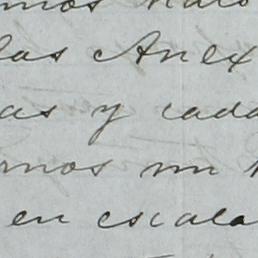 las Anex
as y cada
mos un
en escala